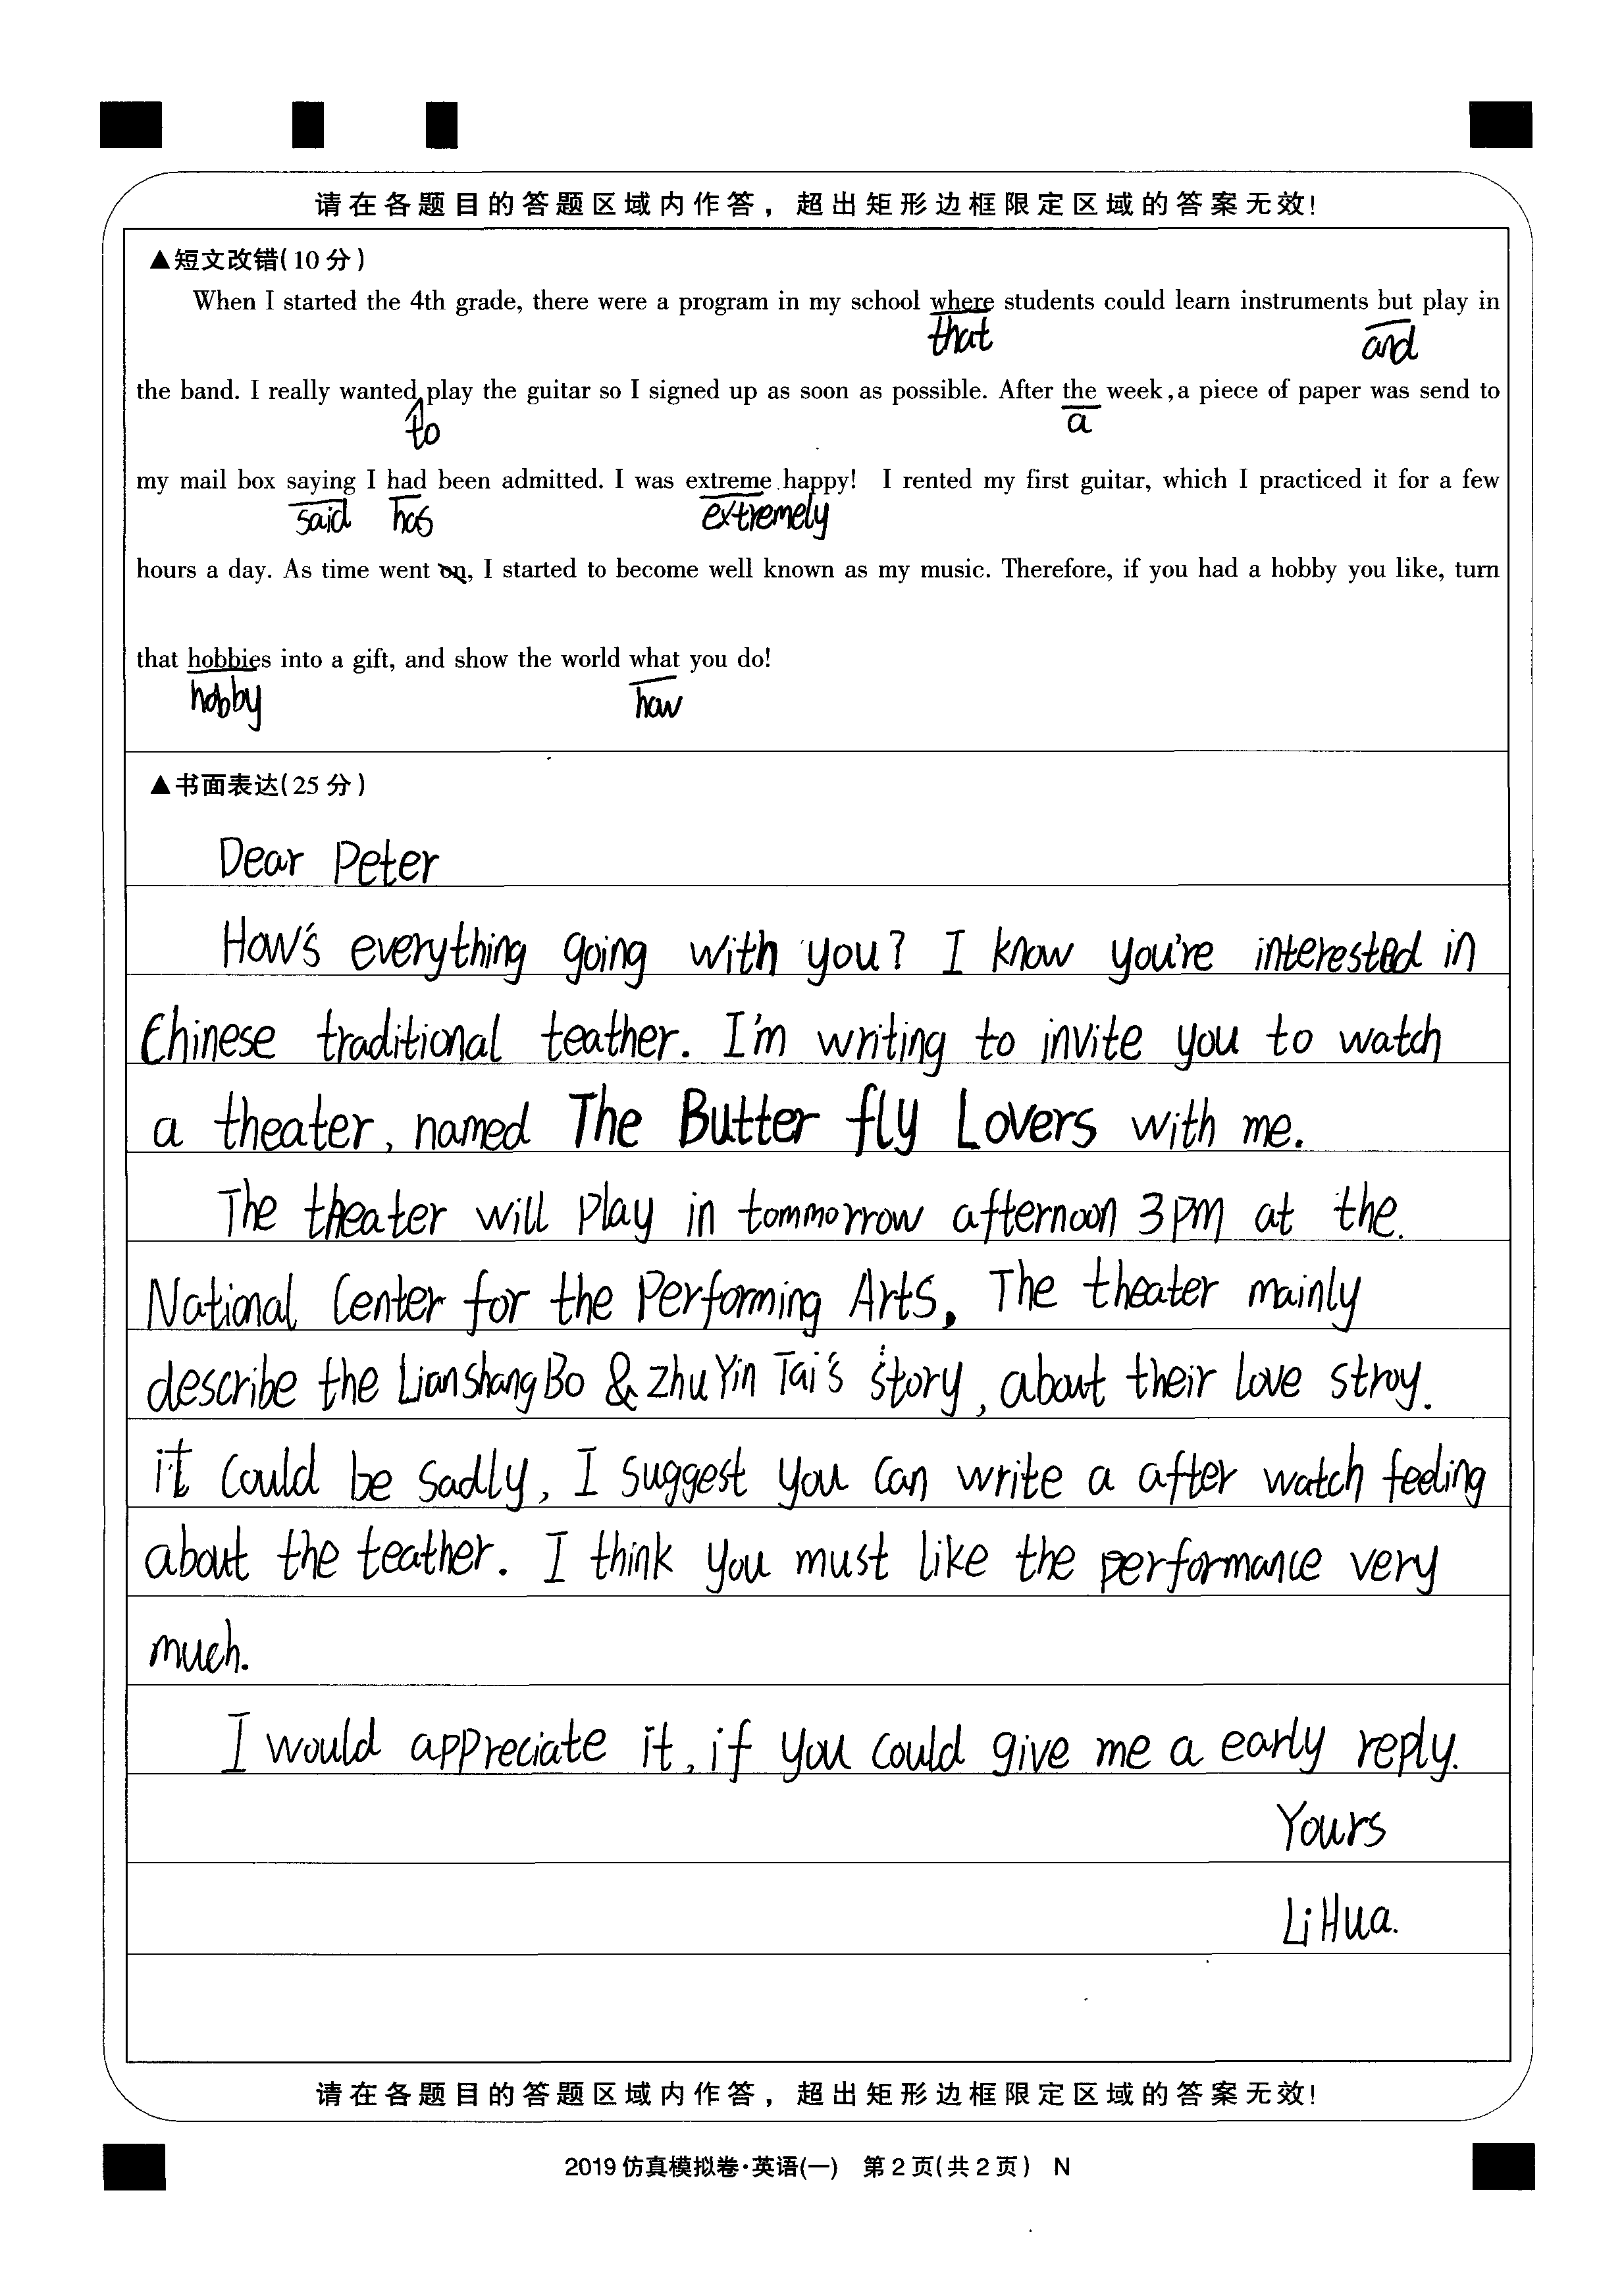 请在各题目的答题区域内作答，超出矩形边框限定区域的答案无效!
▲短文改错(10分)
When I started the 4th grade, there were a program in my school where students could learn instruments but play in
that and
the band. I really wanted play the guitar so I signed up as soon as possible. After the week, a piece of paper was send to
to a
my mail box saying I had been admitted. I was extreme happy! I rented my first guitar, which I practiced it for a few
said has extremely
hours a day. As time went on, I started to become well known as my music. Therefore, if you had a hobby you like, turn
that hobbies into a gift, and show the world what you do!
hobby how
▲书面表达(25分)
Dear Peter
How's everything going with you? I know you're interested in
Chinese traditional teather. I'm writing to invite you to watch
a theater, named The Butter fly Lovers with me.
The theater will play in tommorrow afternoon 3PM at the.
National Center for the Performing Arts. The theater mainly
describe the LianShangBo & zhuYin Tai's story, about their love stroy.
it could be sadly, I suggest you can write a after watch feeling
about the teather. I think you must like the performance very
much.
I would appreciate it, if you could give me a early reply.
Yours
LiHua.
请在各题目的答题区域内作答，超出矩形边框限定区域的答案无效!
2019仿真模拟卷·英语(一) 第2页(共2页) N